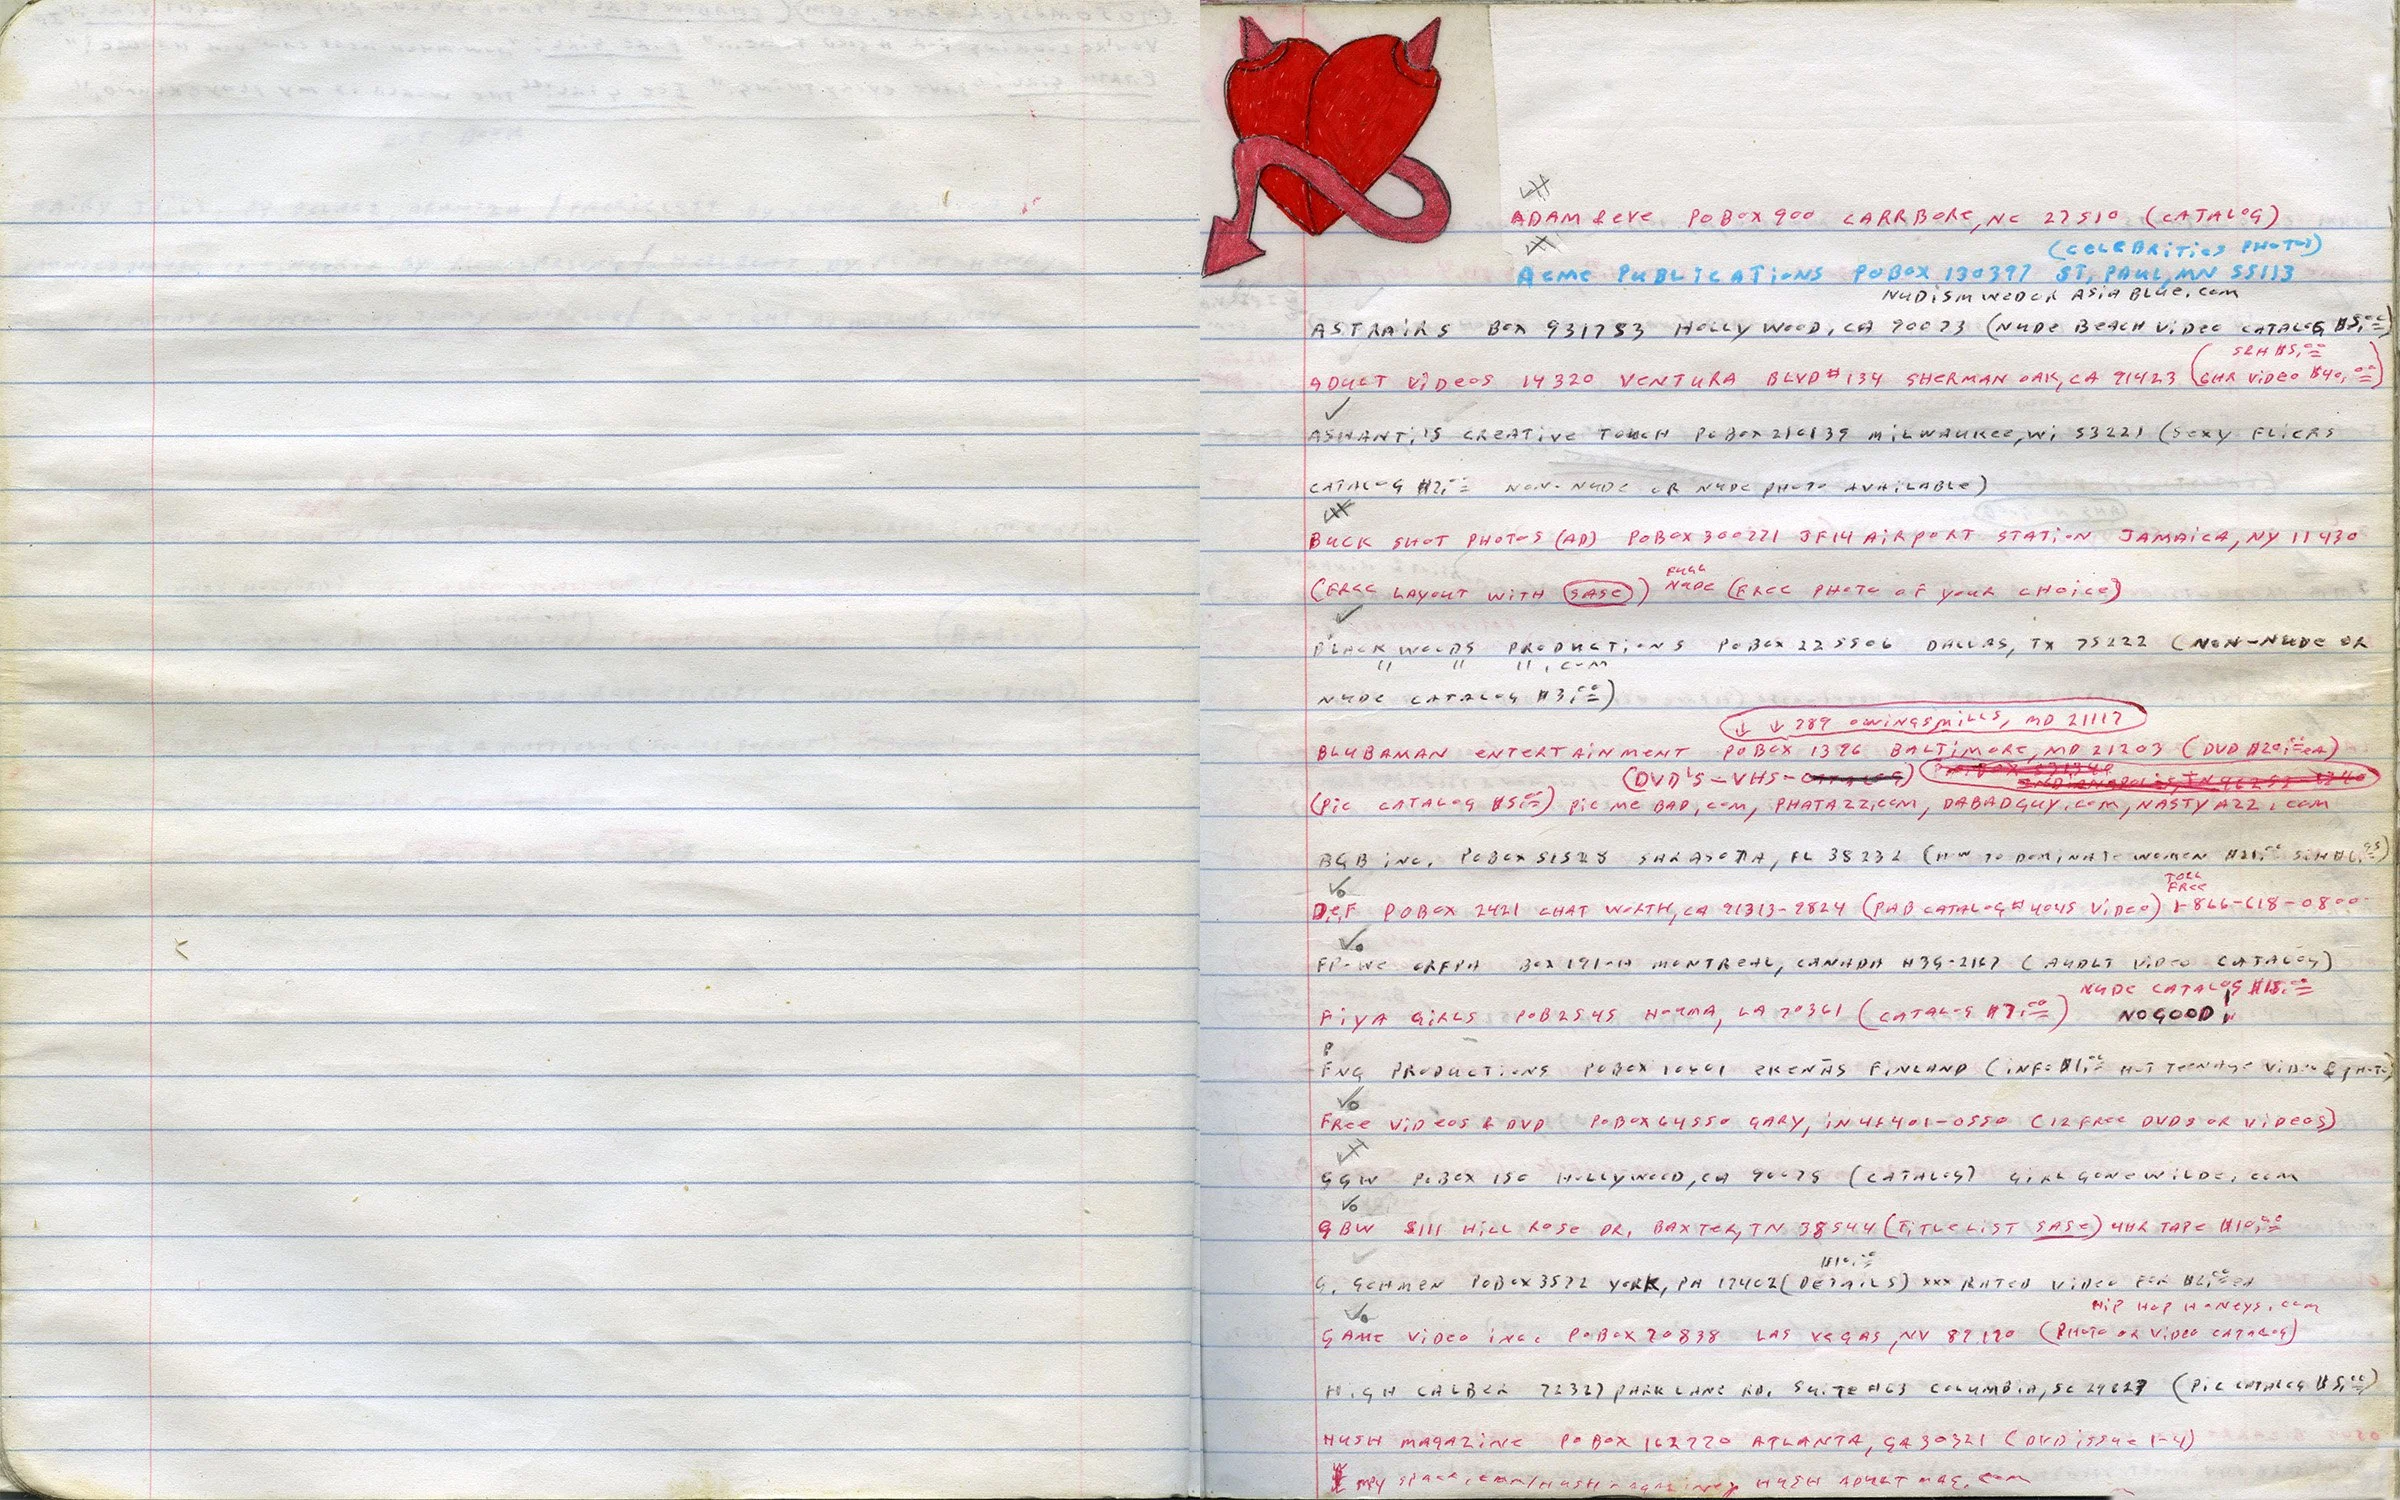 ADAM & EVE POBOX 900 CARRBORE, NC 27510 (CATALOG)
(CELEBRITIES PHOTOS)
ACME PUBLICATIONS POBOX 130397 ST, PAUL, MN 55113
NUDISM WEDOR ASIABLUE.COM
ASTRAIRS BOX 931753 HOLLY WOOD, CA 90093 (NUDE BEACH VIDEO CATALOG $5.00)
S&H $5.00
ADULT VIDEOS 14320 VENTURA BLVD #134 SHERMAN OAK, CA 91423 (6HR VIDEO $40.00)
ASHANTI'S CREATIVE TOUCH POBOX 210139 MILWAUKEE, WI 53221 (SEXY FLICKS
CATALOG $2.00 NON-NUDE OR NUDE PHOTO AVAILABLE)
BUCK SHOT PHOTOS (AD) POBOX 300271 JF14 AIRPORT STATION JAMAICA, NY 11430
FULL
(FREE LAYOUT WITH SASE) NUDE (FREE PHOTO OF YOUR CHOICE)
BLACK WOODS PRODUCTIONS POBOX 225506 DALLAS, TX 75222 (NON-NUDE OR
" " ".COM
NUDE CATALOG $3.00)
↓ ↓ 289 OWINGSMILLS, MD 21117
BLUBAMAN ENTERTAINMENT POBOX 1396 BALTIMORE, MD 21203 (DVD $20.00 EA)
(DVD'S-VHS-CATALOG)
(PIC CATALOG $5.00) PIC ME BAD.COM, PHATAZZ.COM, DABADGUY.COM, NASTYAZZ.COM
BGB INC. POBOX SARASOTA, FL (HOW TO DOMINATE WOMEN
TOLL
FREE
D.E.F POBOX 2421 CHAT WORTH, CA 91313-2824 (PAB CATALOG #4045 VIDEO) 1-866-618-0800
BOX 191-H MONTREAL, CANADA H3G-2K7 (ADULT VIDEO CATALOG)
NUDE CATALOG $15.00
FIYA GIRLS POB 2545 HOUMA, LA 70361 (CATALOG $7.00) NO GOOD!
P
FNG PRODUCTIONS POBOX 10601 EKENÄS FINLAND (INFO $1.00 HOT TEENAGE VIDEO & PHOTO)
FREE VIDEOS & DVD POBOX 64550 GARY, IN 46401-0550 (12 FREE DVDS OR VIDEOS)
GGW POBOX 150 HOLLYWOOD, CA 90078 (CATALOG) GIRLGONEWILDE.COM
GBW 8111 HILL ROSE DR, BAXTER, TN 38544 (TITLE LIST SASE) 4HR TAPE $10.00
$10.00
G. GEHMEN POBOX 3572 YORK, PA 17402 (DETAILS) XXX RATED VIDEO FOR $2.00 EA
HIP HOP HONEYS.COM
GAME VIDEO INC. POBOX 70838 LAS VEGAS, NV 89170 (PHOTO OR VIDEO CATALOG)
HIGH CALBER PARKLANE RD, SUITE #63 COLUMBIA, SC (PIC CATALOG $5.00)
HUSH MAGAZINE POBOX 162770 ATLANTA, GA 30321 (DVD ISSUE 1-4)
MY SPACE.COM/HUSH HUSH ADULT MAG.COM